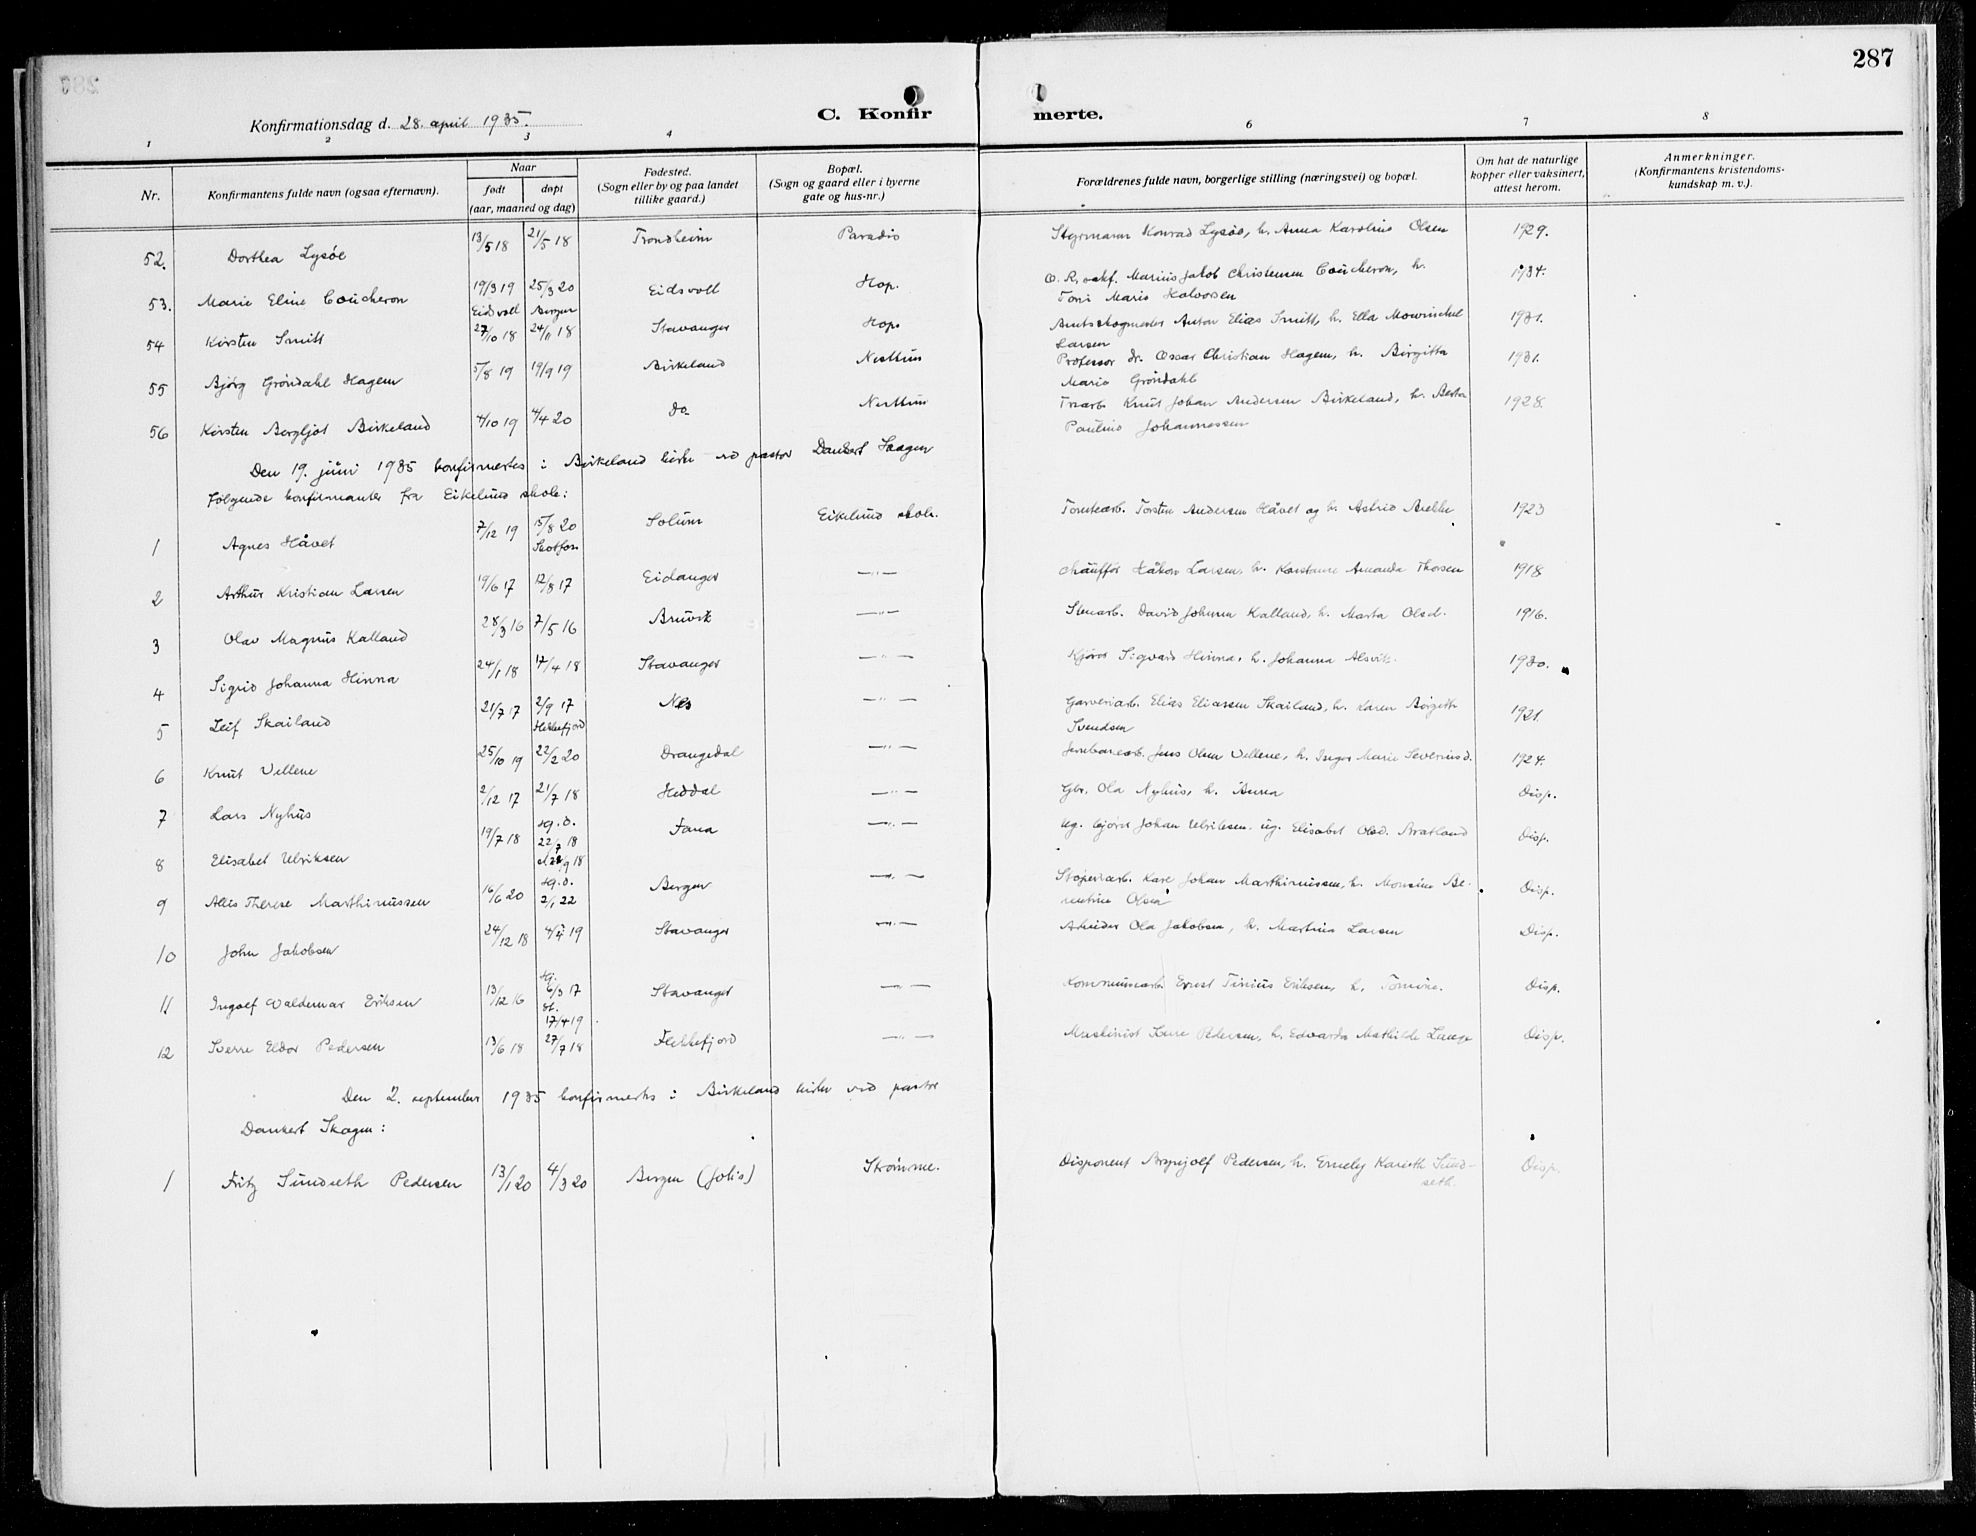 287
Konfirmationsdag d. 28. april 1935.
C. Konfirmerte.
1 2 3 4 6 7 8
Nr.
Konfirmantens fulde navn (ogsaa efternavn).
Naar
født døpt
(aar, maaned og dag)
Fødested.
(Sogn eller by og paa landet
tillike gaard.)
Bopæl.
(Sogn og gaard eller i byerne
gate og hus-nr.)
Forældrenes fulde navn, borgerlige stilling (næringsvei) og bopæl.
Om hat de naturlige
kopper eller vaksinert,
attest herom.
Anmerkninger.
(Konfirmantens kristendoms-
kundskap m. v.).
52. Dorthea Lysöe 13/5 18 21/5 18 Trondheim Paradis Styrmann Konrad Lysöe, h. Anna Karoline Olsen 1929.
53. Marie Eline Coucheron 19/3 19 25/3 20 Eidsvoll Hop. O. R. sakf. Marius Jakob Christensen Coucheron, h. 1934.
Eidsvoll Bergen Toni Marie Halvorsen
54 Kirsten Smitt 27/10 18 24/11 18 Stavanger Hop. Amtsskogmester Anton Elias Smitt, h. Ella Mowinckel 1931.
Larsen
55 Bjørg Gröndahl Hagem 5/8 19 19/9 19 Birkeland Nesttun Professor dr. Oscar Christian Hagem, h. Birgitta 1931.
Marie Gröndahl
56 Kirsten Bergljot Birkeland 4/10 19 4/4 20 do Nesttun Knut Johan Andersen Birkeland, h. Berta 1928.
Pauline Johannessen
Den 19. juni 1935 konfirmertes i Birkeland kirke ved pastor Dankert Skagen
følgende konfirmanter fra Eikelund skole:
1 Agnes Håvet 7/12 19 15/8 20 Solum Eikelund skole. Tomtearb. Torsten Andersen Håvet og h. Astrid 1923
Skotfoss
2 Arthur Kristian Larsen 19/6 17 12/8 17 Eidanger —"— Chauffør Håkon Larsen, h. Konstanse Amanda Thorsen 1918
3 Olav Magnus Kalland 28/3 16 7/5 16 Bruvik —"— Stenarb. David Johnsen Kalland, h. Marta Olsd. 1916.
4 Sigrid Johanna Hinna 24/1 18 17/4 18 Stavanger —"— Kjörer Sigvard Hinna, h. Johanna Alsvik. 1930.
5 Leif Skailand 21/7 17 2/9 17 Nes —"— Garveriarb. Elias Eliassen Skailand, h. Karen Birgith 1921.
Flekkefjord Svendsen
6 Knut Vellene 25/10 19 22/2 20 Drangedal —"— Jernbanearb. Jens Olsen Vellene, h. Inger Marie Severinsd. 1924.
7 Lars Nyhus 2/12 17 21/7 18 Heddal —"— Gbr. Ola Nyhus, h. Anna Disp.
8 Elisabet Ulriksen 19/7 18 hj. d. 22/7 18 Fana —"— Ug. kjörer Johan Ulriksen. ug. Elisabet Olsd. Bratland Disp.
9 Allis Therese Marthinussen 16/6 20 hj. d. 2/1 22 Bergen —"— Støperiarb. Kare Johan Marthinussen, h. Monsine Be- Disp.
rentine Olsen
10 John Jakobsen 24/12 18 4/4 19 Stavanger —"— Arbeider Ola Jakobsen, h. Martina Larsen Disp.
11 Ingolf Valdemar Eriksen 13/12 16 hj. 6/3 17 Stavanger —"— Kommunearb. Ernst Tinius Eriksen, h. Tomine. Disp.
st. 17/4 19
12 Sverre Eldor Pedersen 13/6 18 27/7 18 Flekkefjord —"— Maskinist Pedersen, h. Edvarda Mathilde Lange Disp.
Den 2. september 1935 konfirmertes i Birkeland kirke ved pastor
Dankert Skagen:
1 Fritz Sundseth Pedersen 13/1 20 4/3 20 Bergen (Johs) Strømme. Disponent Brynjolf Pedersen, h. Emely Karieth Sund- Disp.
seth.